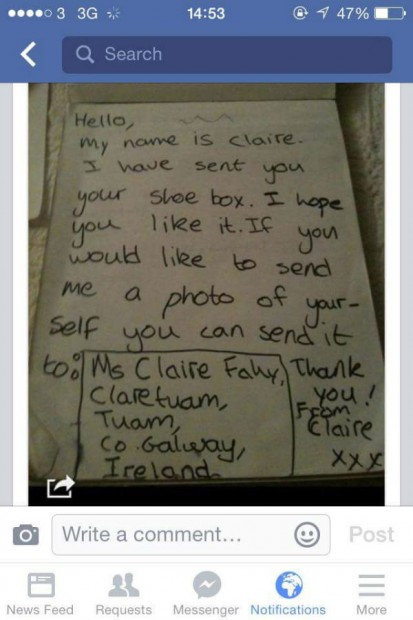 3 3G 14:53 47%
Search
Hello,
My name is Claire.
I have sent you
your shoe box. I hope
you like it. If you
would like to send
me a photo of your-
self you can send it
to:
Ms Claire Fahy,
Claretuam,
Tuam,
Co. Galway,
Ireland
Thank
you!
From
Claire
xxx
Write a comment...
Post
News Feed Requests Messenger Notifications More